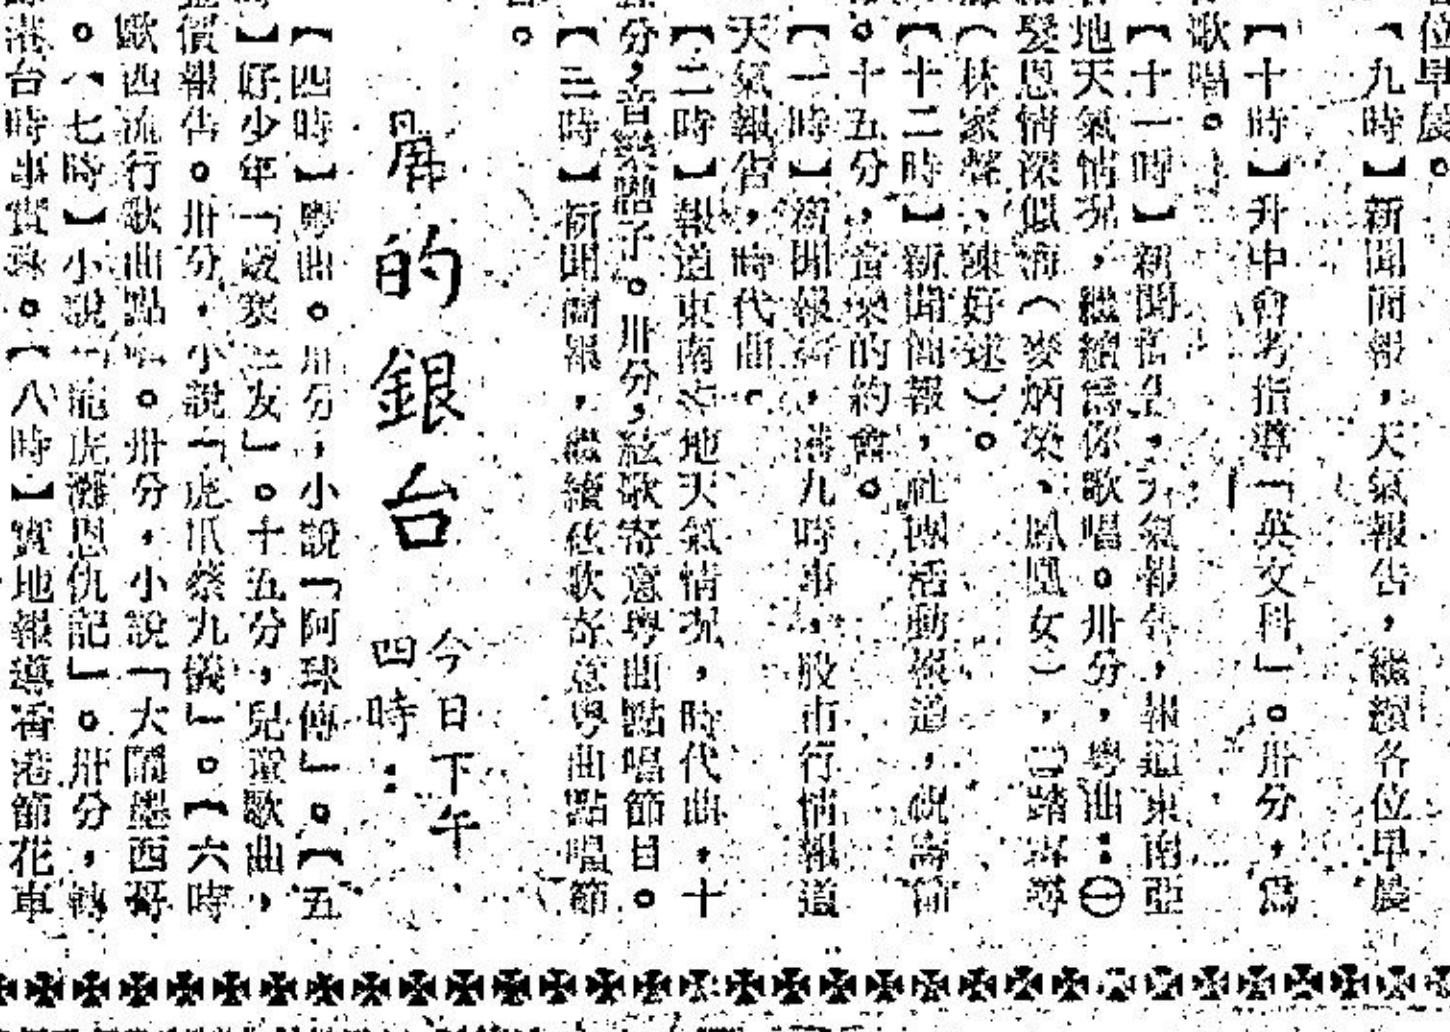 位早晨。
【九時】新聞簡報,天氣報告,繼續各位早晨
【十時】升中會考指導「英文科」。卅分,爲
歌唱。
【十一時】新聞報告,天氣報告,報道東南亞
地天氣情況,繼續爲你歌唱。卅分,粤曲:㊀
髮恩情深似海(麥炳榮、鳳凰女),㊁踏雪尋
(林家聲、陳好逑)。
【十二時】新聞簡報,社團活動報道,祝壽節
。十五分,音樂的約會。
【一時】新聞報告,港九時事,股市行情報道
天氣報告,時代曲。
【二時】報道東南亞地天氣情况,時代曲,十
分,音樂譜子。卅分,絃歌寄意粤曲點唱節目。
【三時】新聞簡報,繼續絃歌寄意粤曲點唱節
。
的銀台
今日下午
四時:
【四時】粤曲。卅分,小說「阿球傳」。【五
】好少年「歲寒三友」。十五分,兒童歌曲,
價報告。卅分,小說「虎爪蔡九儀」。【六時
歐西流行歌曲點唱。卅分,小說「大鬧西
。【七時】小說「龍虎灘恩仇記」。卅分,轉
港台時事實錄。【八時】實地報導香港節花車